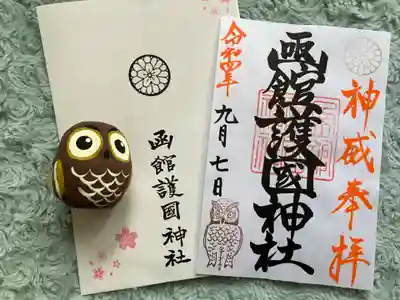 神威奉拝
函館護國神社
令和四年
九月七日
函館護國神社